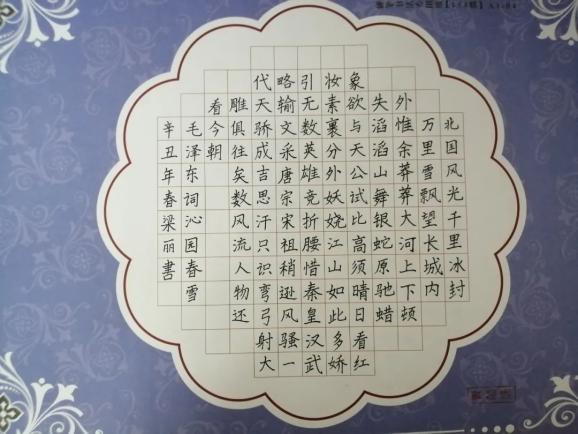 北国风光千里冰封
万里雪飘望长城内
外惟余莽莽大河上下顿
失滔滔山舞银蛇原驰蜡
象欲与天公试比高须晴日看红
妆素裹分外妖娆江山如此多娇
引无数英雄竞折腰惜秦皇汉武
略输文采唐宗宋祖稍逊风骚一
代天骄成吉思汗只识弯弓射大
雕俱往矣数风流人物还
看今朝
毛泽东词沁园春雪
辛丑年春梁丽書